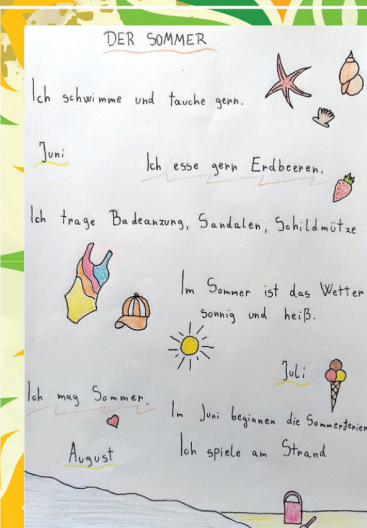 DER SOMMER
Ich schwimme und tauche gern.
Juni
Ich esse gern Erdbeeren.
Ich trage Badeanzung, Sandalen, Schildmütze
Im Sommer ist das Wetter
sonnig und heiß.
Juli
Ich mag Sommer.
Im Juni beginnen die Sommerferien
August
Ich spiele am Strand